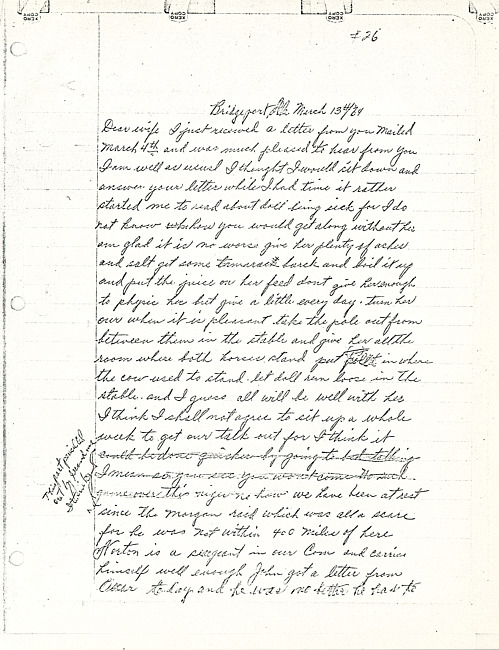 #26
Bridgeport Ala March 13th/64
Dear wife I just received a letter from you Mailed
March 4th and was much pleased to hear from you
I am well as usual I thought I would set down and
answer your letter while I had time it rather
started me to read about doll being sick for I do
not know how you would get along without her
am glad it is no worse give her plenty of ashes
and salt get some tamarack bark and boil it up
and put the juice on her feed dont give her enough
to physic her but give a little every day. turn her
our when it is pleasant take the pole out from
between them in the stable and give her all the
room where both horses stand put in where
the cow used to stand. let doll run loose in the
stable. and I guess all will be well with her
I think I shall not agree to sit up a whole
week to get our talk out for I think it
could be done quicker by going to bed talking
I mean so you see you wont come
game over this how we have been at rest
since the morgan raid which was all a scare
for he was not within 400 miles of here
Norton is a sergeant in our Com and carries
himself well enough John got a letter from
Oscar to day and he was no better he had to
This part
out